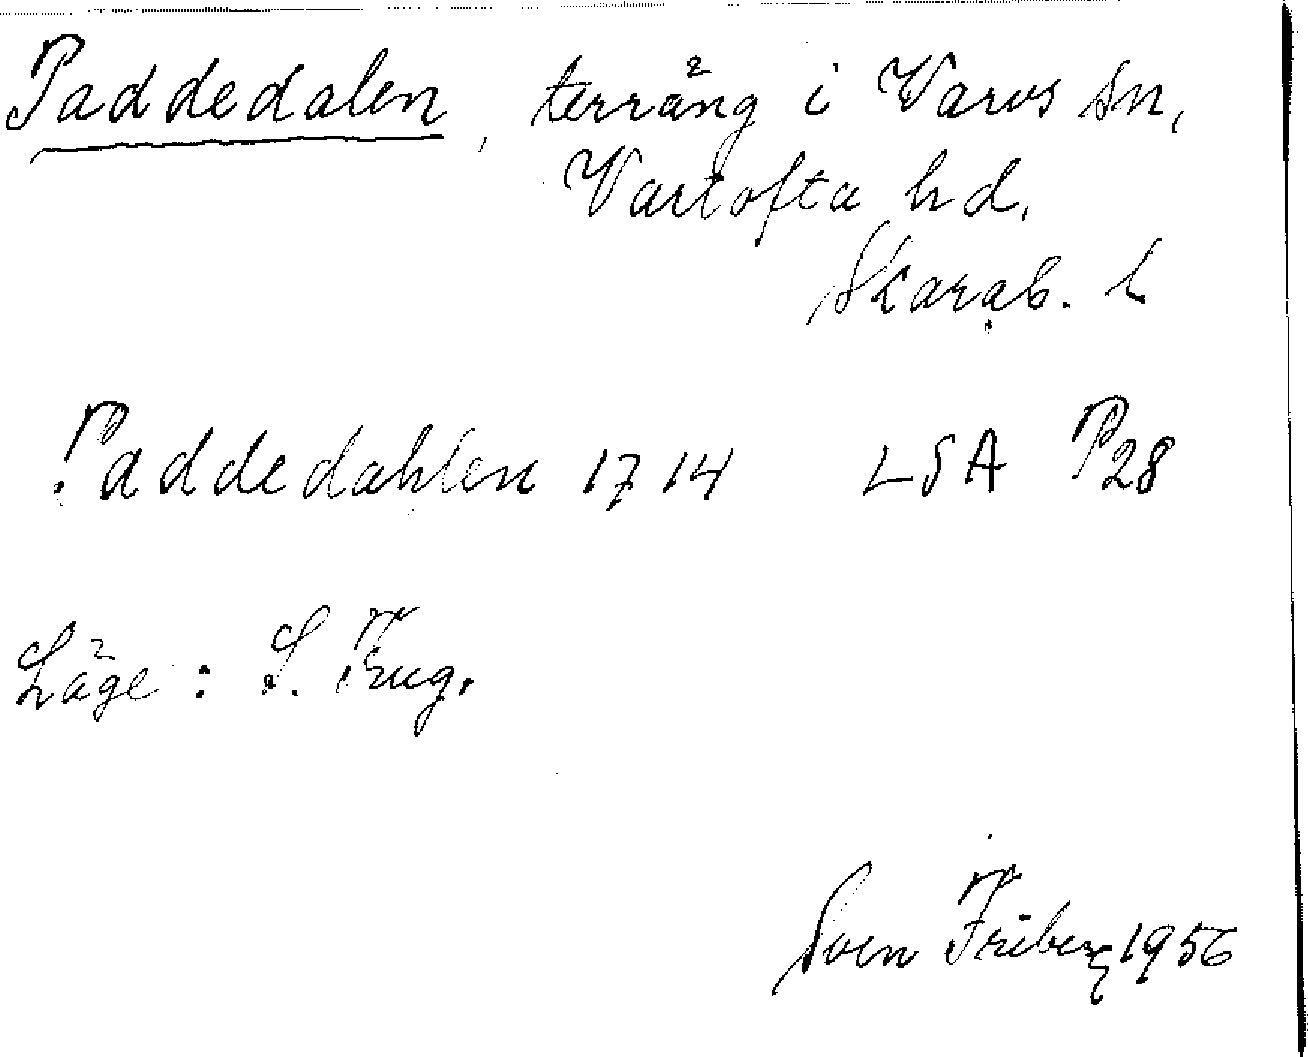 Paddedalen, terräng i Varvs sn,
Vartofta hd,
Skarab. l
Paddedahlen 1714 LSA P28
Läge: S.
Sven Friberg 1956